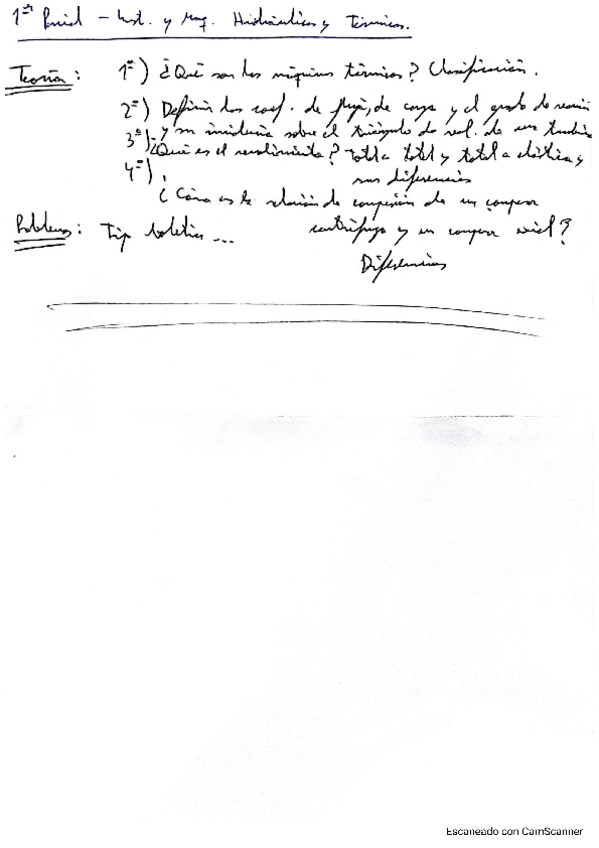 1er Parcial - Inst. y Maq. Hidráulicas y Térmicas.
Teoría: 1º) ¿Qué son las máquinas térmicas? Clasificación.
2º) Definir los coef. de flujo, de carga y el grado de reacci
y su incidencia sobre el triángulo de vel. de una turbina
3º) ¿Qué es el rendimiento? total a total y total a estática y
sus diferencias
4º) ¿Cómo es la relación de compresión de un compresor
centrífugo y un compresor axial?
Diferencias
Problemas: Tipo boletín ...
Escaneado con CamScanner